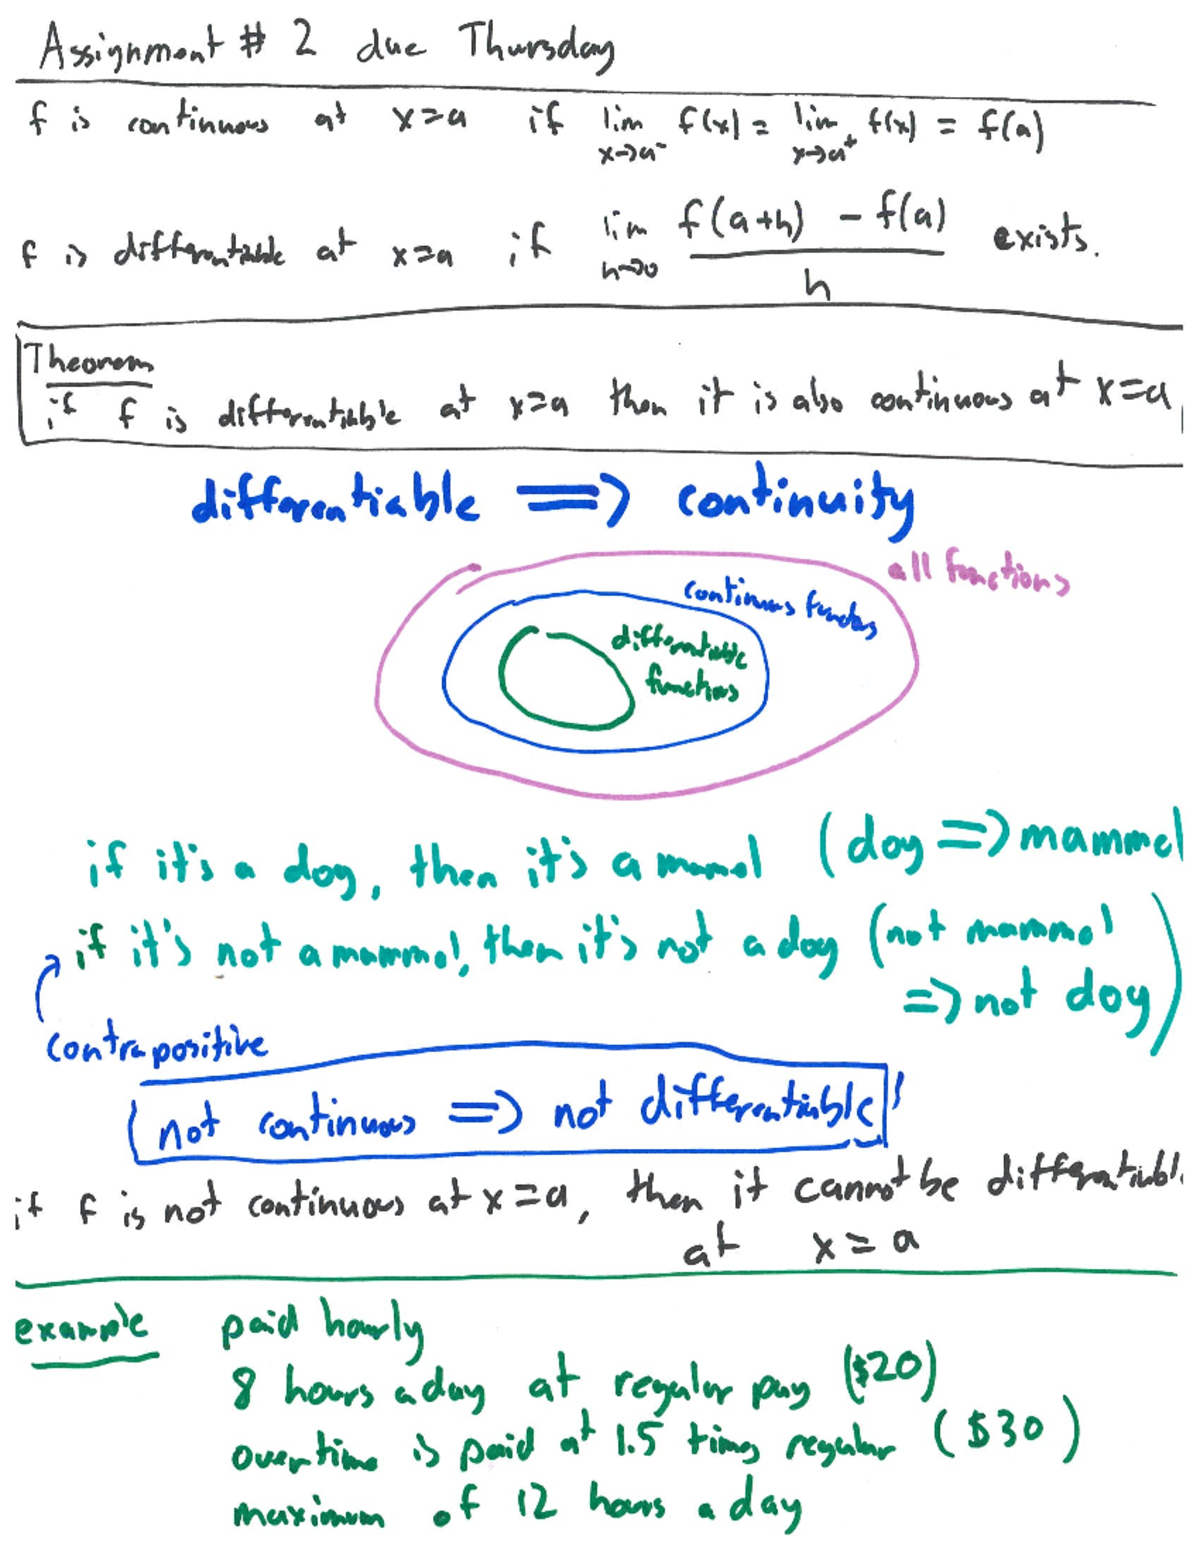 Assignment # 2 due Thursday
f is continuous at x=a if lim x→a⁻ f(x) = lim x→a⁺ f(x) = f(a)
f is differentiable at x=a if lim h→0 (f(a+h) - f(a))/h exists.
Theorem
if f is differentiable at x=a then it is also continuous at x=a
differentiable => continuity
all functions
continuous functions
differentiable
functions
if it's a dog, then it's a mamal (dog => mammal
if it's not a mammal, then it's not a dog (not mammal
=> not dog)
contrapositive
(not continuous => not differentiable)
if f is not continuous at x=a, then it cannot be differentiabl
at x=a
example paid hourly
8 hours a day at regular pay ($20)
overtime is paid at 1.5 times regular ($30)
maximum of 12 hours a day